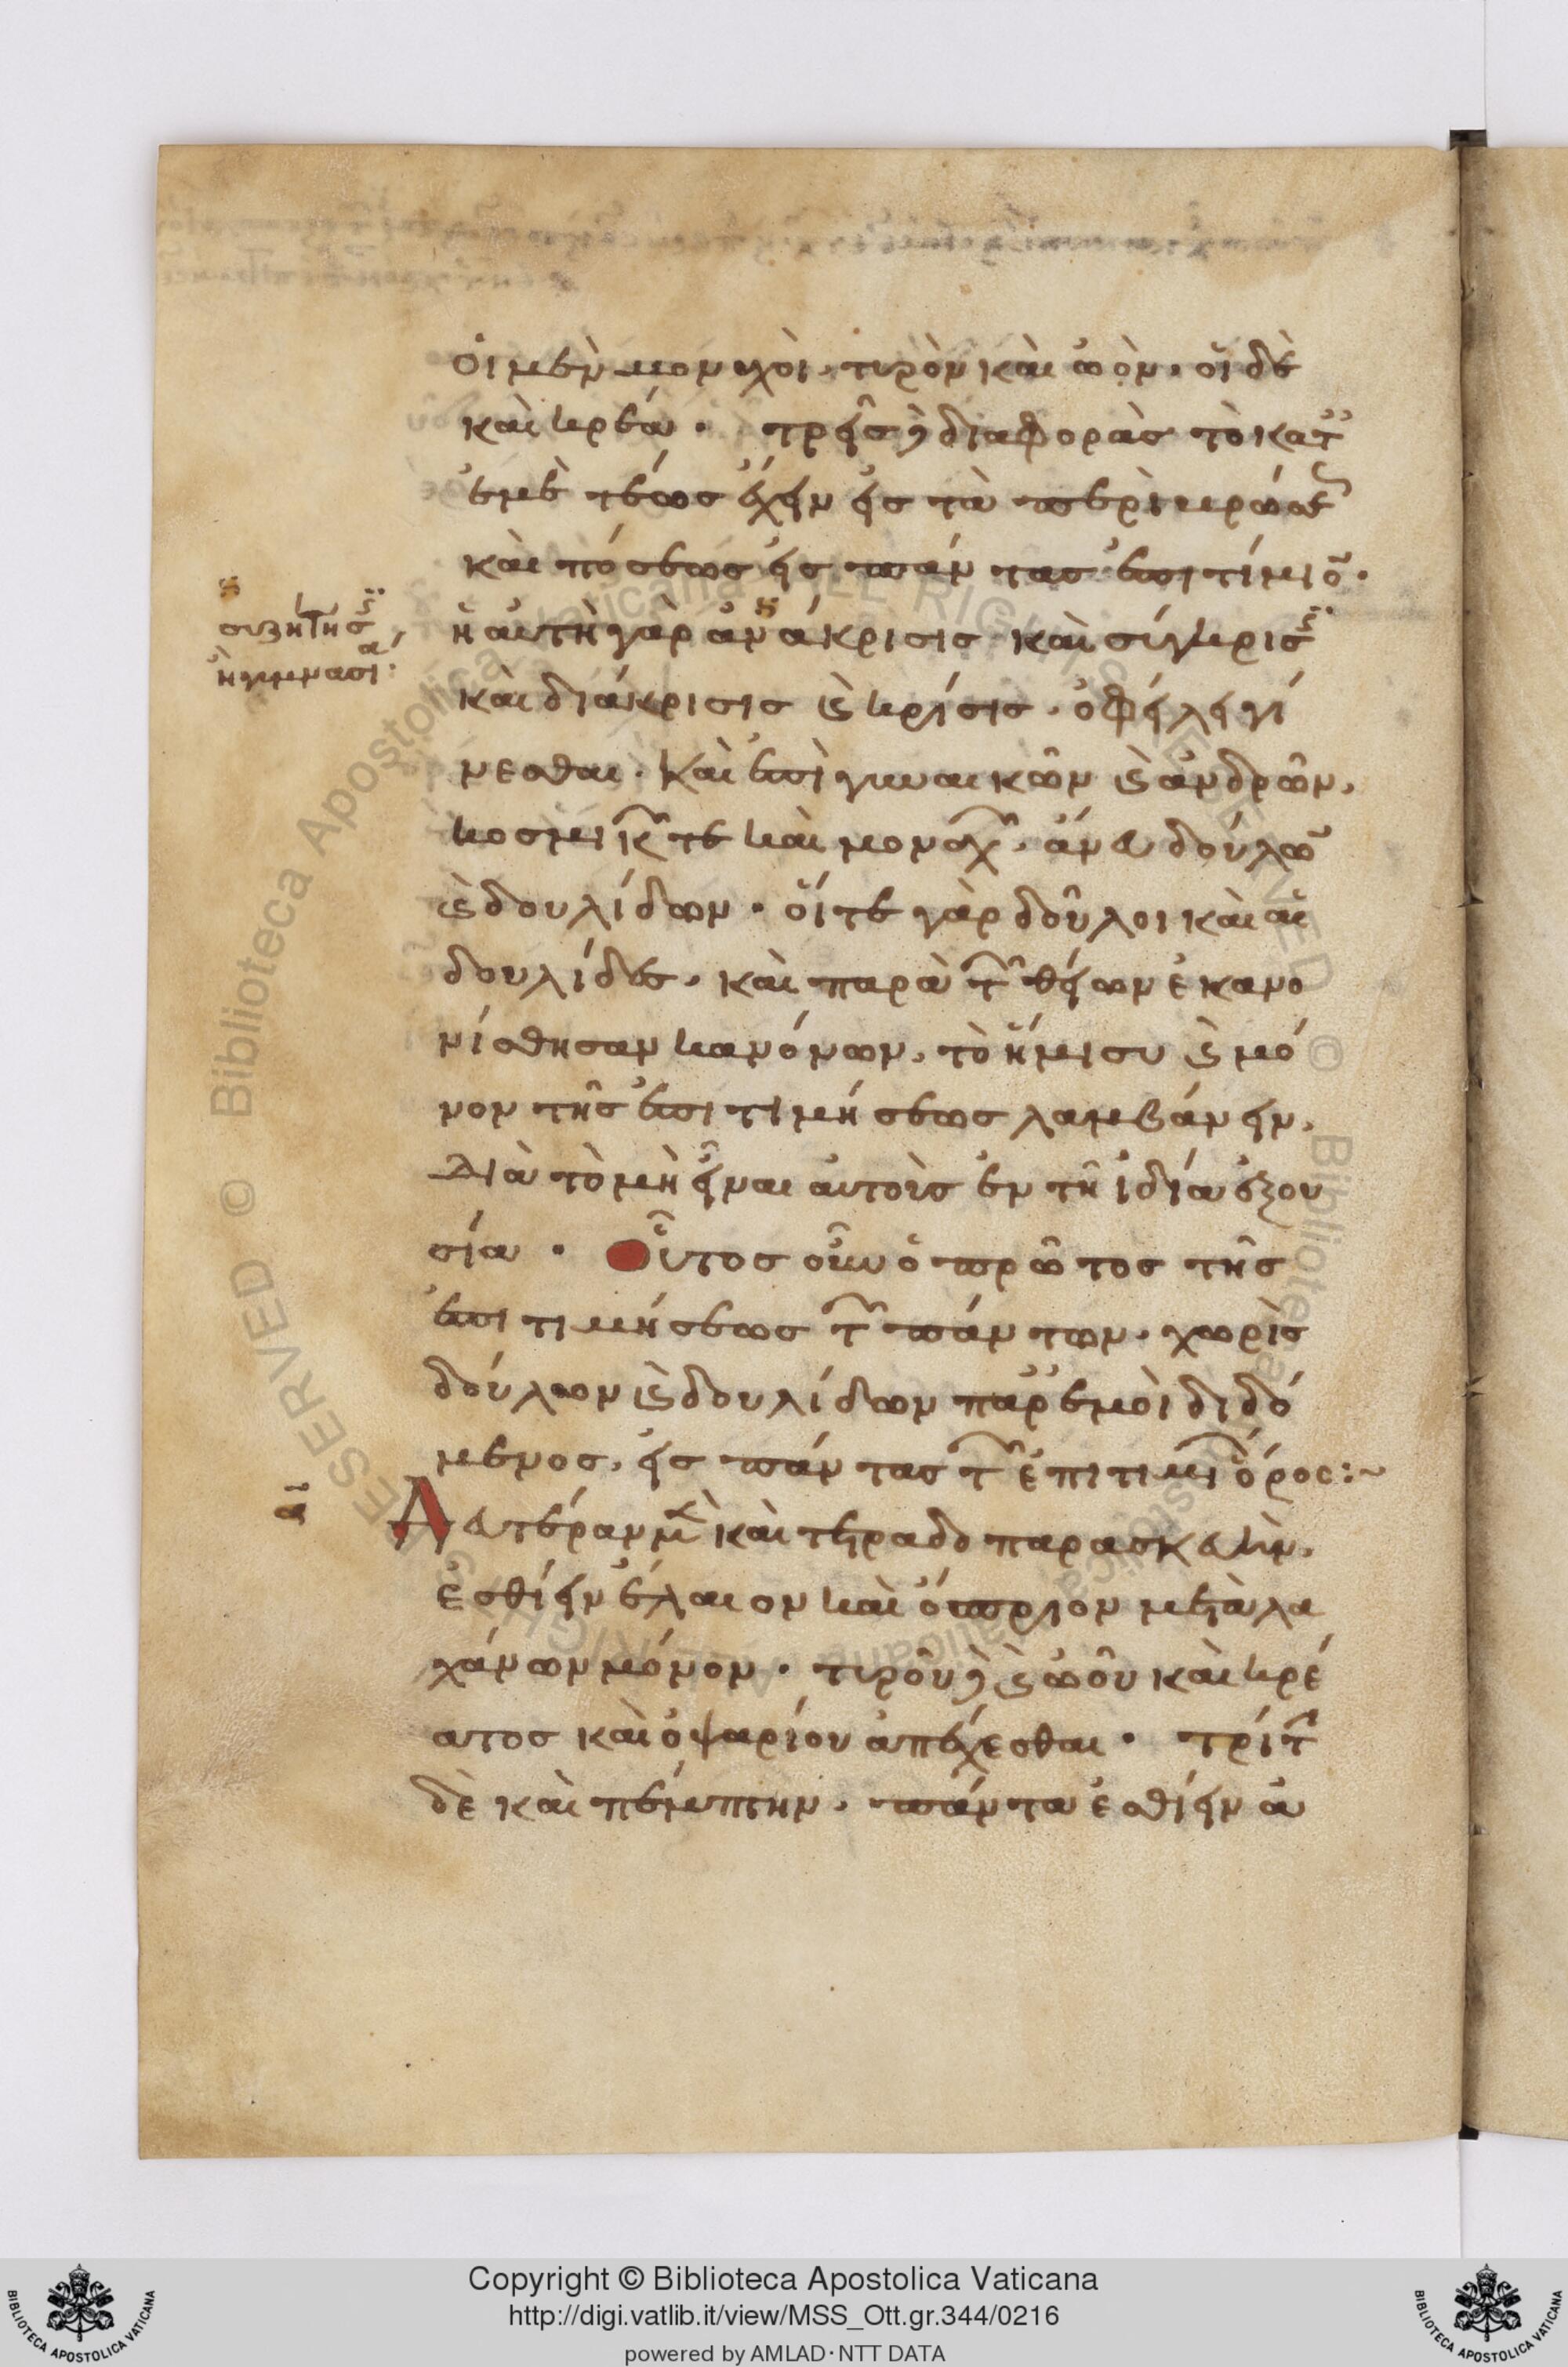 οἱ μὲν μοναχοὶ, τυρὸν καὶ ὠὸν, οἱ δὲ
καὶ κρέα · τρεῖς δὲ διαφορὰς τὸ κατ
ἐμὲ τέως ἔχειν εἰς τὰ
καὶ πόσεως εἰς πάντας ἐπιτίμιον ·
συζήτησις
ἢ γυμνασία:
ἡ αὐτὴ γὰρ ἀνάκρισις καὶ σύγκρισις
καὶ διάκρισις καὶ κρίσις, ὀφείλει γί
νεσθαι · καὶ ἐπὶ γυναικῶν καὶ ἀνδρῶν,
κοσμικῶν τε καὶ μοναχῶν, ἄνευ δούλων
καὶ δουλίδων · οἵ τε γὰρ δοῦλοι καὶ αἱ
δουλίδες, καὶ παρὰ τῶν θείων ἐκανο
νίσθησαν κανόνων, τὸ ἥμισυ καὶ μό
νον τῆς ἐπιτιμήσεως λαμβάνειν,
διὰ τὸ μὴ εἶναι αὐτοὺς ἐν τῆ ἰδία ἐξου
σία · Οὗτος οὖν ὁ πρῶτος τῆς
ἐπιτιμήσεως τῶν πάντων, χωρὶς
δούλων καὶ δουλίδων παρ ἐμοὶ διδό
μενος, εἰς πάντας τῶν ἐπιτιμίων ὅρος:~
Δευτέραν μὲν καὶ τετράδα παρασκευὴν,
ἐσθίειν ἔλαιον καὶ ὄσπριον μετὰ λα
χάνων μόνον · τυροῦ δὲ καὶ ὠοῦ καὶ κρέ
ατος καὶ ὀψαρίου ἀπέχεσθαι · τρίτην
δὲ καὶ πέμπτην, πάντα ἐσθίειν ἃ
Copyright © Biblioteca Apostolica Vaticana
http://digi.vatlib.it/view/MSS_Ott.gr.344/0216
powered by AMLAD·NTT DATA
BIBLIOTECA APOSTOLICA VATICANA
BIBLIOTECA APOSTOLICA VATICANA